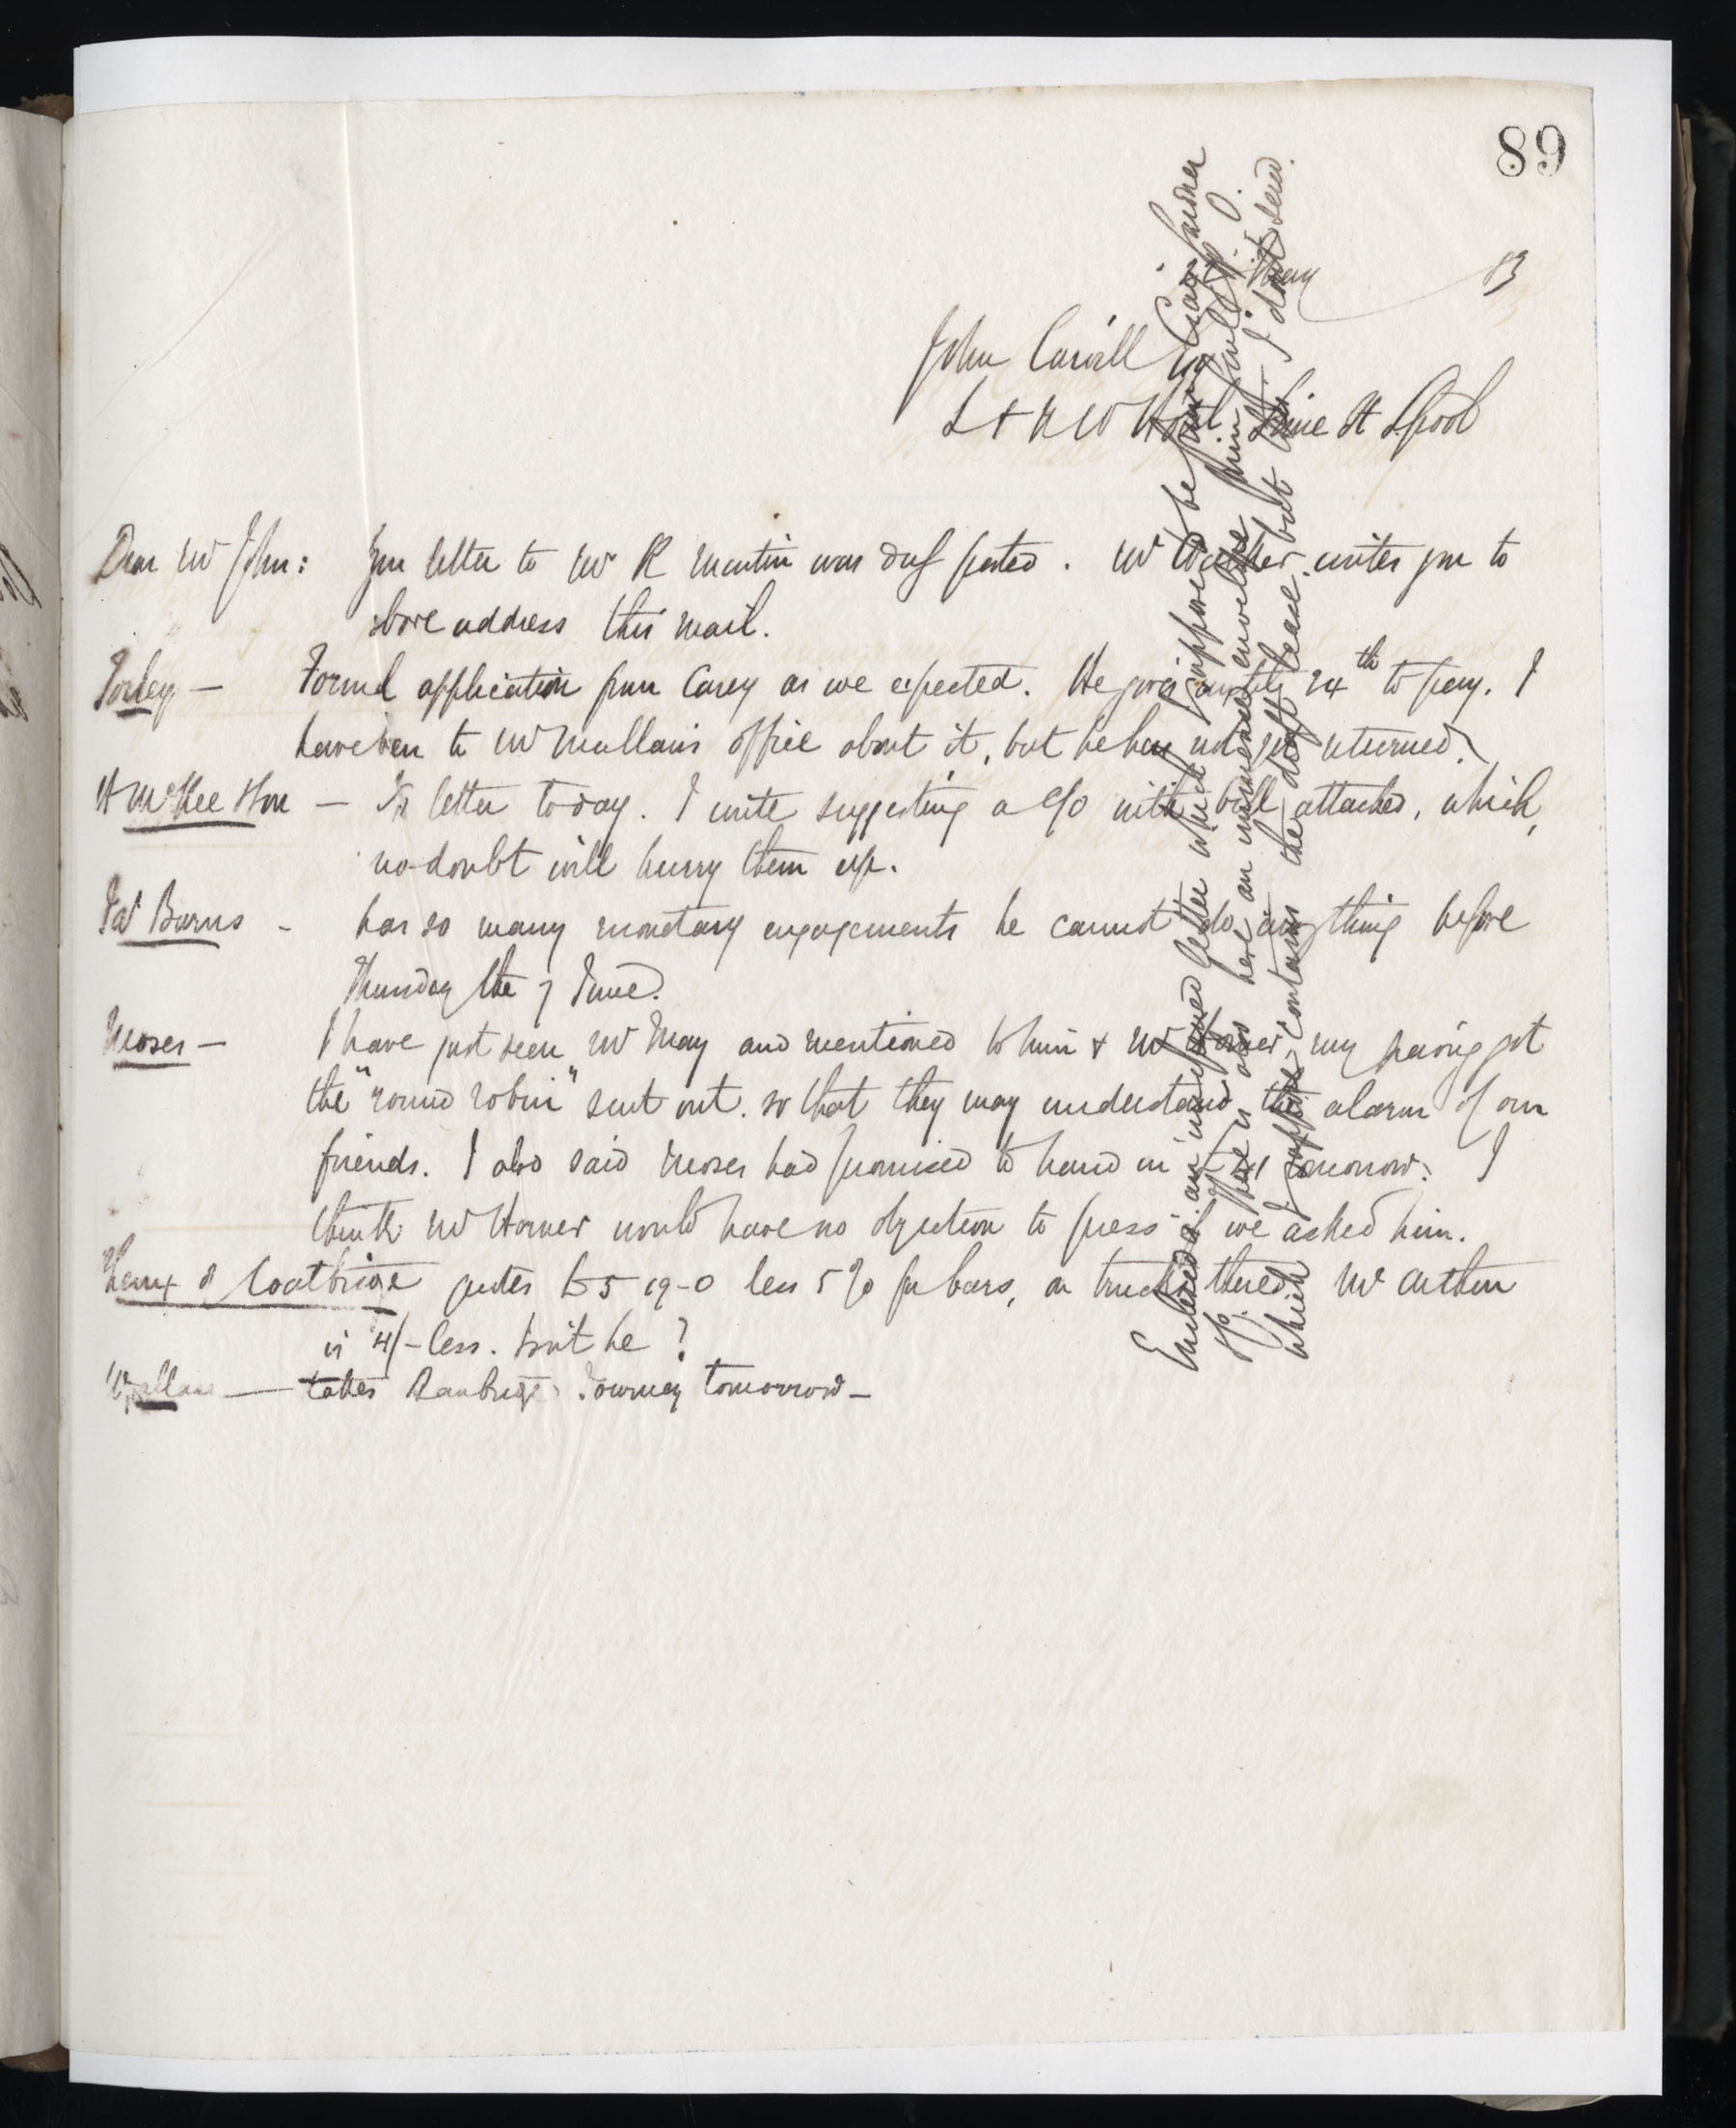 89
Newry 13
John Carvill Esq
L & N W Hotel Lime St Lpool
Dear Mr John: Your letter to Mr R Martin was duly posted. Mr Walker writes you to
above address this mail.
Torley — Formal application from Carey as we expected. He gives until 24th to pay. I
have been to Mr Mullan's office about it, but he has not yet returned.
H McKee & Son — letter today. I write suggesting a c/o with bill attached, which,
no doubt will hurry them up.
Burns - has so many monetary engagements he cannot do anything before
Thursday the 7 June.
Moses — I have just seen Mr May and mentioned to him & Mr Horner my having got
the "round robin" sent out. so that they may understand the alarm of our
friends. I also said Moses had promised to hand in tomorrow. I
think Mr Horner would have no objection to press if we asked him.
of Coatbridge quotes £5 19-0 less 5% for bars, on trucks there. Mr Arthur
is 4/- less. Isn't he?
Wallace — takes Banbridge Journey tomorrow —
Enclosed is an unsigned letter which I suppose to be from Craig Gardner
& Co. There is also here an immense envelope from J. O.
which I suppose contains the draft lease but this I don't send.